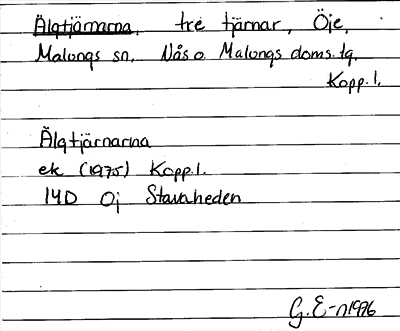 Älgtjärnarna, tre tjärnar, Öje,
Malungs sn. Nås o. Malungs doms. tg.
Kopp. l.
Älgtjärnarna
ek (1975) Kopp. l.
14D Öj Stavaheden
G. E-n 1976